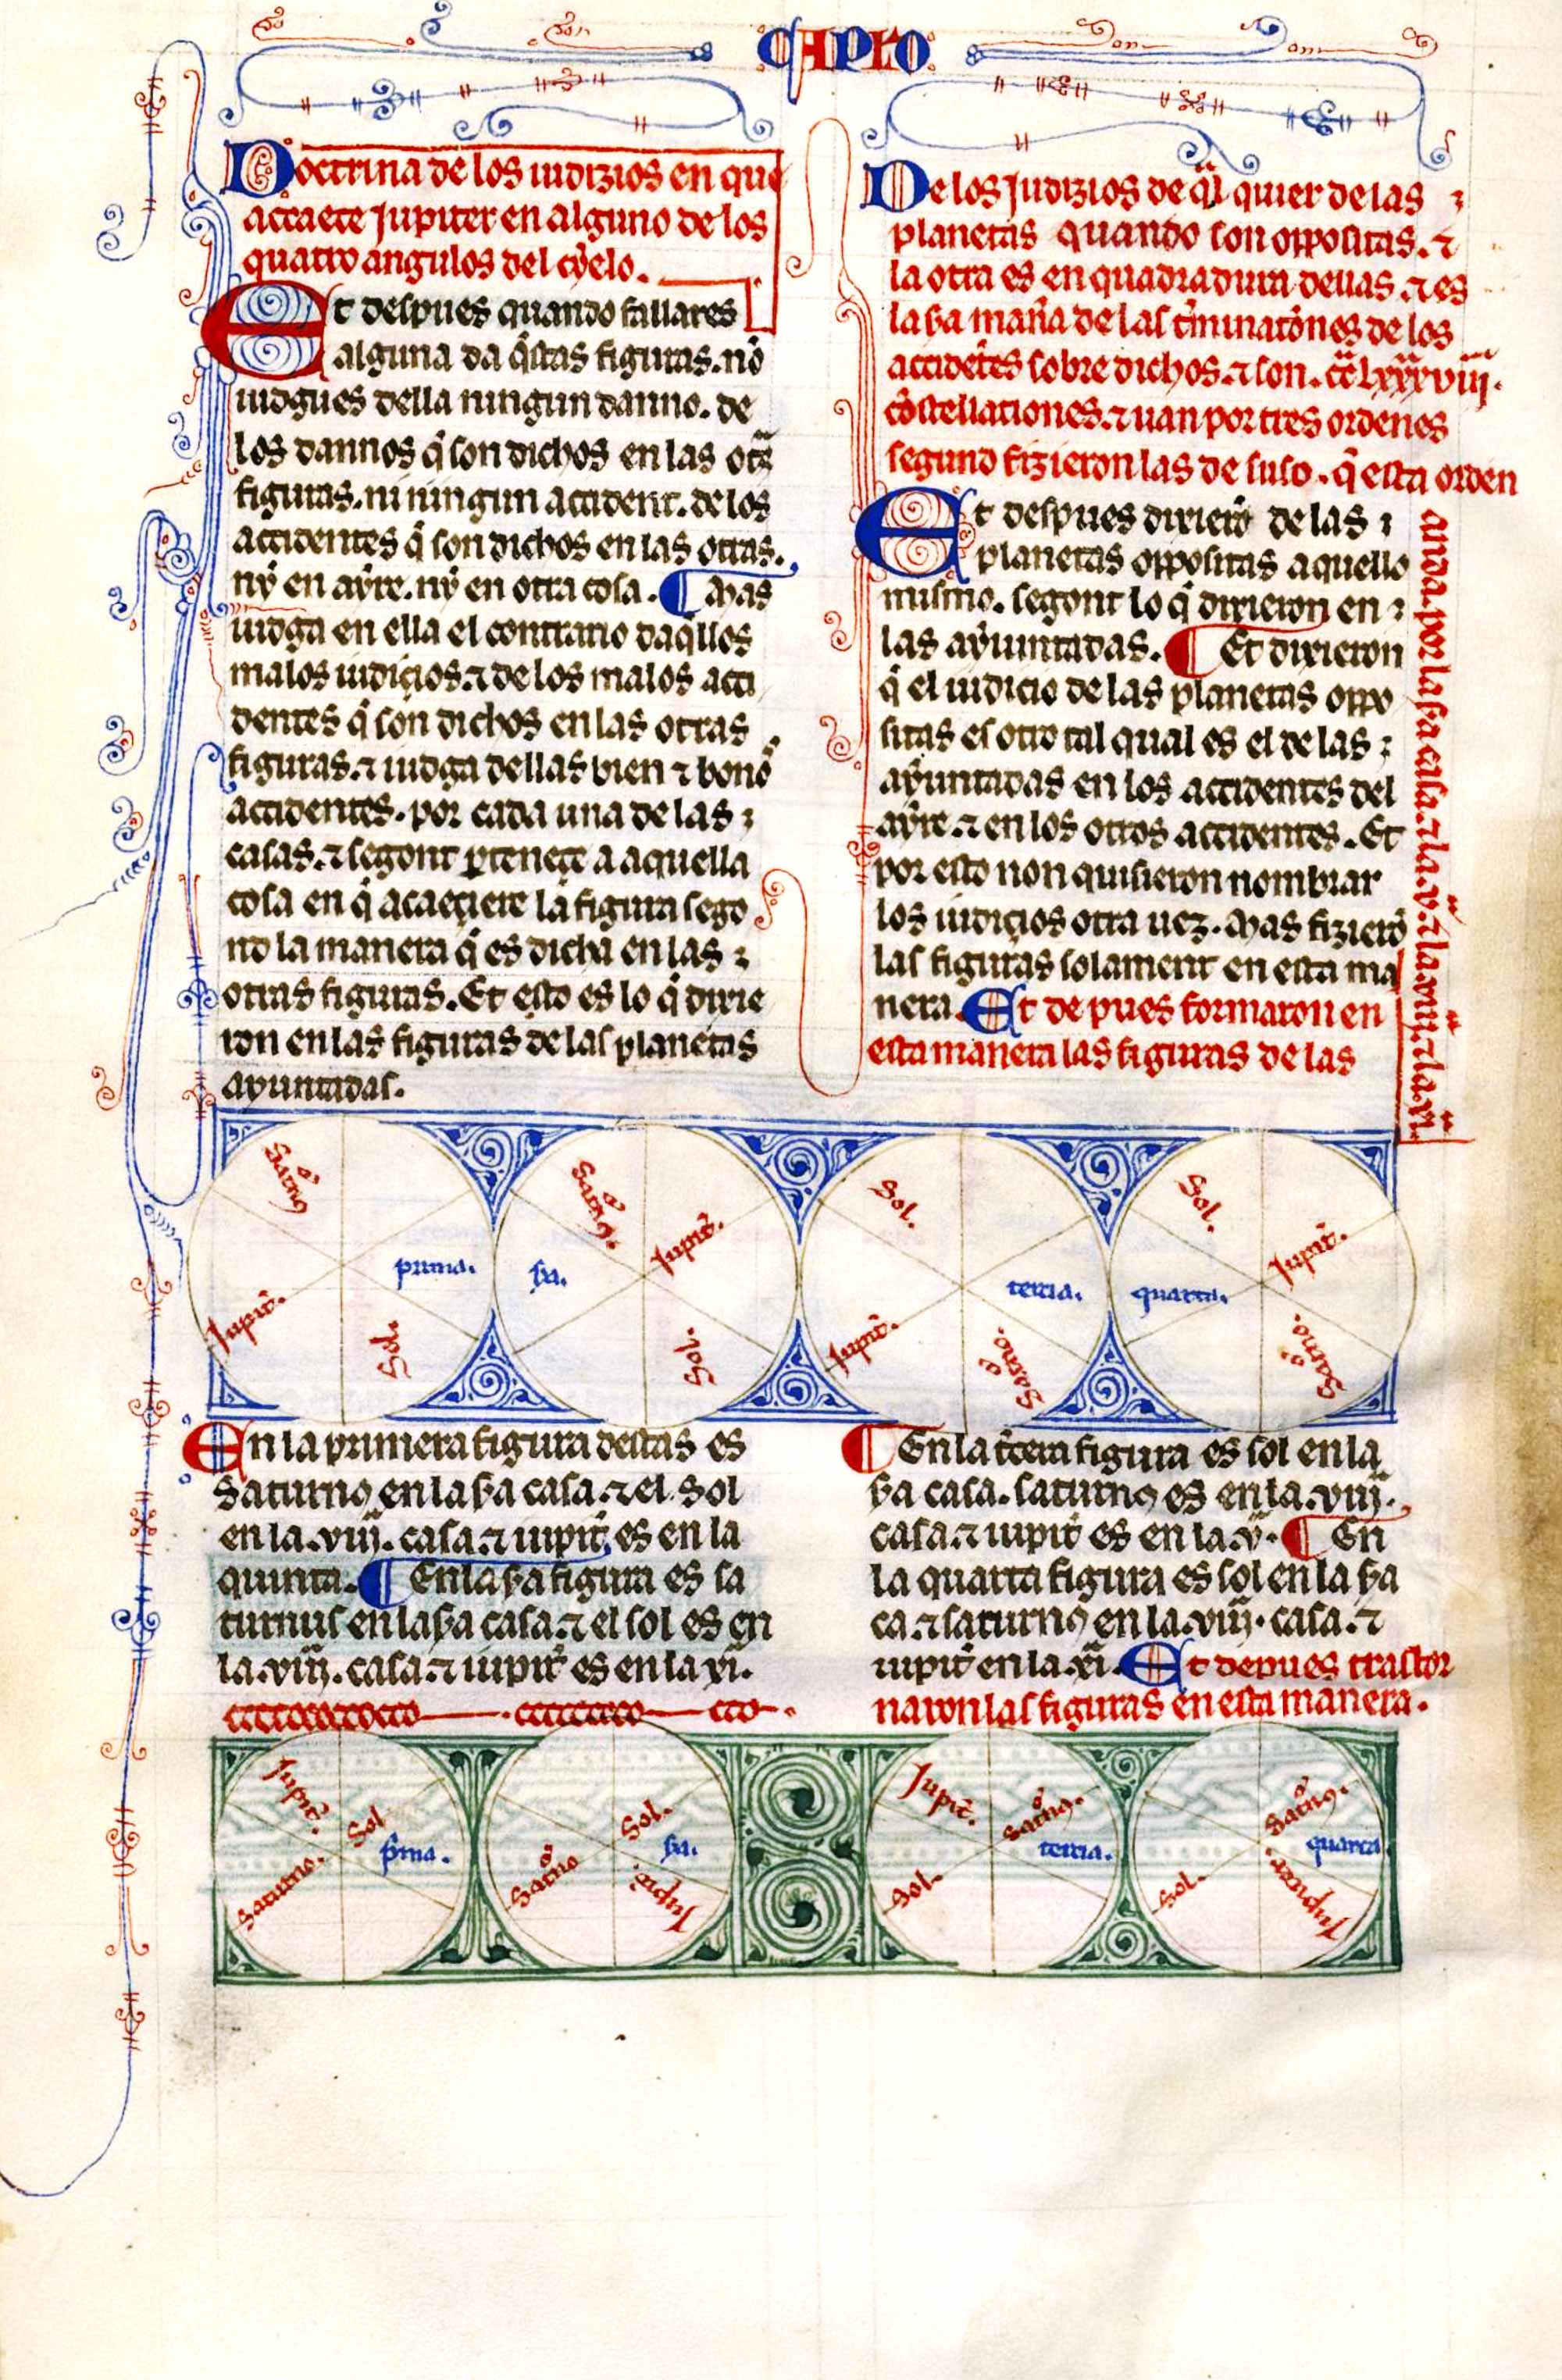 CAPLO
Doctrina de los iudizios en que
acaece Jupiter en alguno de los
quatro angulos del cyelo.
Et despues quando fallares
alguna da q̃stas figuras. nõ
iudgues della ningun danno. de
los dannos q̃ son dichos en las otr̃
figuras. ni ningun accident. de los
accidentes q̃ son dichos en las otras.
nẏ en aẏre. nẏ en otra cosa. ¶ Mas
iudga en ella el contrario daq̃llos
malos iudicios. ⁊ de los malos acci
dentes q̃ son dichos en las otras
figuras. ⁊ iudga dellas bien ⁊ bonos
accidentes. por cada una de las
casas. ⁊ segont ꝑtenece a aquella
cosa en q̃ acaeçiere la figura sego
nd la manera q̃ es dicha en las
otras figuras. Et esto es lo q̃ dixie
ron en las figuras de las planetas
ayuntadas.
De los Judizios de q̃l quier de las
planetas quando son oppositas. ⁊
la otra es en quadradura dellas. ⁊ es
la ẞa man̄a de las t̃minatiões de los
accidẽtes sobre dichos. ⁊ son. cc̃ lxxxviii.
cõstellationes. ⁊ uan por tres ordenes
segund fizieron las de suso. q̃ esta orden
anda por la ẞa casa. ⁊ la. v. ⁊ la. viii. ⁊ la. xi.
Et despues dixierõ de las
planetas oppositas aquello
mismo. segont lo q̃ dixieron en
las aẏuntadas. ¶ Et dixieron
q̃ el iudicio de las planetas oppo
sitas es otro tal qual es el de las
aẏuntadas en los accidentes del
aẏre. ⁊ en los otros accidentes. Et
por esto non quisieron nombrar
los iudicios otra uez. Mas fizierõ
las figuras solament en esta ma
nera. Et de pues formaron en
esta manera las figuras de las
Sat̃no Jupit̃. Sol. prima.
Sat̃no. Jupit̃. Sol. ẞa.
Sol. Jupit̃. Sat̃no. tercia.
Sol. Jupit̃. Sat̃no. quarta.
En la primera figura destas es
Saturno en la ẞa casa. ⁊ el Sol
en la. viii. casa. ⁊ iupit̃ es en la
quinta. ¶ En la ẞa figura es sa
turnus en la ẞa casa. ⁊ el sol es en
la. viii. casa. ⁊ iupit̃ es en la xi.
¶ En la t̃cera figura es sol en la
ẞa casa. saturno es en la. viii.
casa. ⁊ iupit̃ es en la. v. ¶ En
la quarta figura es sol en la ẞa
ca. ⁊ saturno en la. viii. casa. ⁊
iupit̃ en la. xi. Et depues trastor
naron las figuras en esta manera.
Jupit̃. Sol Saturno. p̃ma.
Sol. Sat̃no Jupit̃. ẞa.
Jupit̃. Sat̃no. Sol. tercia.
Sat̃no. Sol. Jupiter. quarta